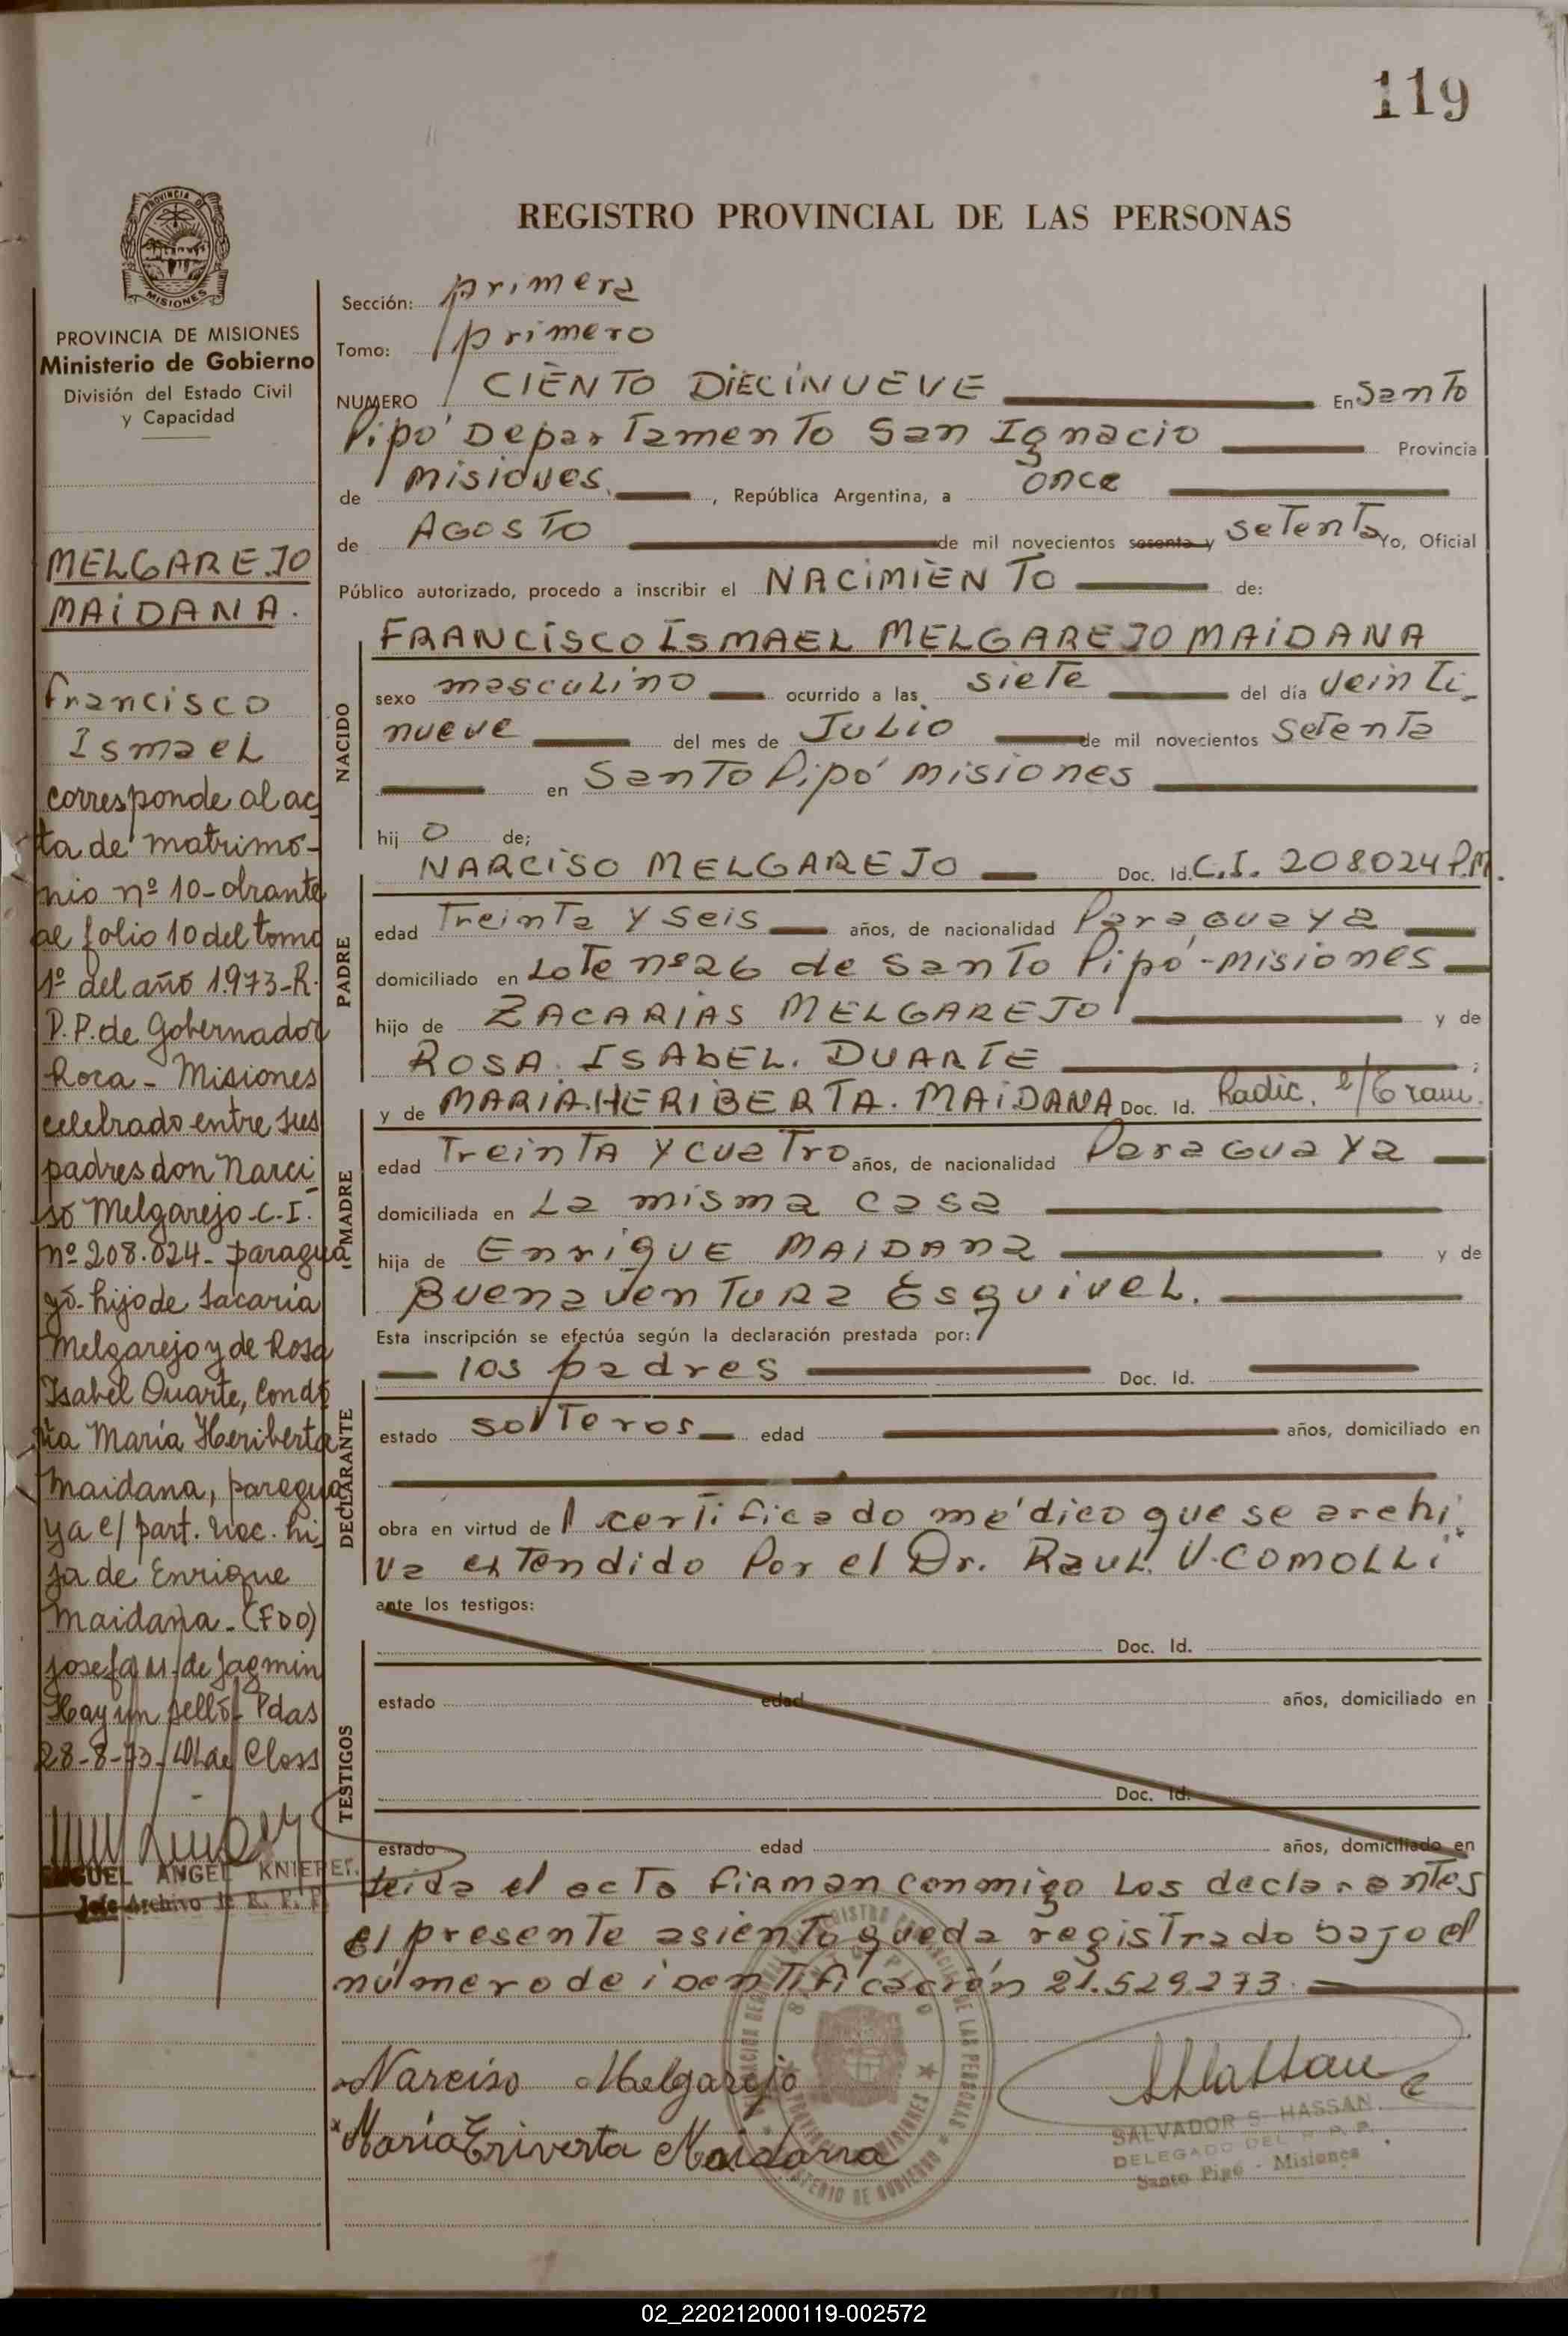 119
PROVINCIA DE
MISIONES
PROVINCIA DE MISIONES
Ministerio de Gobierno
División del Estado Civil
y Capacidad
MELGAREJO
MAIDANA.
Francisco
Ismael
corresponde al ac
ta de matrimo-
nio nº 10- obrante
al folio 10 del tomo
1º del año 1973-R.
P.P. de Gobernador
Roca - Misiones
celebrado entre sus
padres don Narci
so Melgarejo - C.I.
nº 208.024- paragua
yo- hijo de Sacaria
Melgarejo y de Rosa
Isabel Duarte, con do
ña María Heriberta
Maidana, paragua
ya c/ part. nac. hi
ja de Enrique
Maidana - (FDO)
Josefa M. de Jagmin
Hay un sello - Pdas
28-8-73- de Closs
MIGUEL ANGEL KNIEPER.
Jefe Archivo de R. P. P.
REGISTRO PROVINCIAL DE LAS PERSONAS
Sección: primera
Tomo: primero
NUMERO CIENTO DIECINUEVE En Santo
Pipó Departamento San Ignacio Provincia
de misiones, República Argentina, a once
de AGOSTO de mil novecientos sesenta y setenta Yo, Oficial
Público autorizado, procedo a inscribir el NACIMIENTO de:
NACIDO
FRANCISCO ISMAEL MELGAREJO MAIDANA
sexo masculino ocurrido a las siete del día veinti-
nueve del mes de Julio de mil novecientos setenta
en Santo Pipó misiones
hijo de;
PADRE
NARCISO MELGAREJO Doc. Id. C.I. 208.024 P.M.
edad Treinta y seis años, de nacionalidad Paraguaya
domiciliado en Lote nº 26 de Santo Pipó-misiones
hijo de ZACARIAS MELGAREJO y de
ROSA. ISABEL. DUARTE;
MADRE
y de MARIA.HERIBERTA. MAIDANA Doc. Id. Radic. e/Tram.
edad Treinta y cuatro años, de nacionalidad Paraguaya
domiciliada en La misma casa
hija de Enrique MAIDANA y de
Buenaventura Esquivel.
Esta inscripción se efectúa según la declaración prestada por:
DECLARANTE
los padres Doc. Id.
estado solteros edad años, domiciliado en
obra en virtud de 1 certificado médico que se archi
va extendido Por el Dr. Raul. V. COMOLLi
ante los testigos:
TESTIGOS
Doc. Id.
estado edad años, domiciliado en
Doc. Id.
estado edad años, domiciliado en
Leida el acta firman conmigo Los declarantes
el presente asiento queda registrado bajo el
número de identificación 21.529.273.
Narciso Melgarejo
María Eriverta Maidana
SALVADOR S. HASSAN
DELEGADO DEL R. P. P.
Santo Pipó - Misiones
02_220212000119-002572